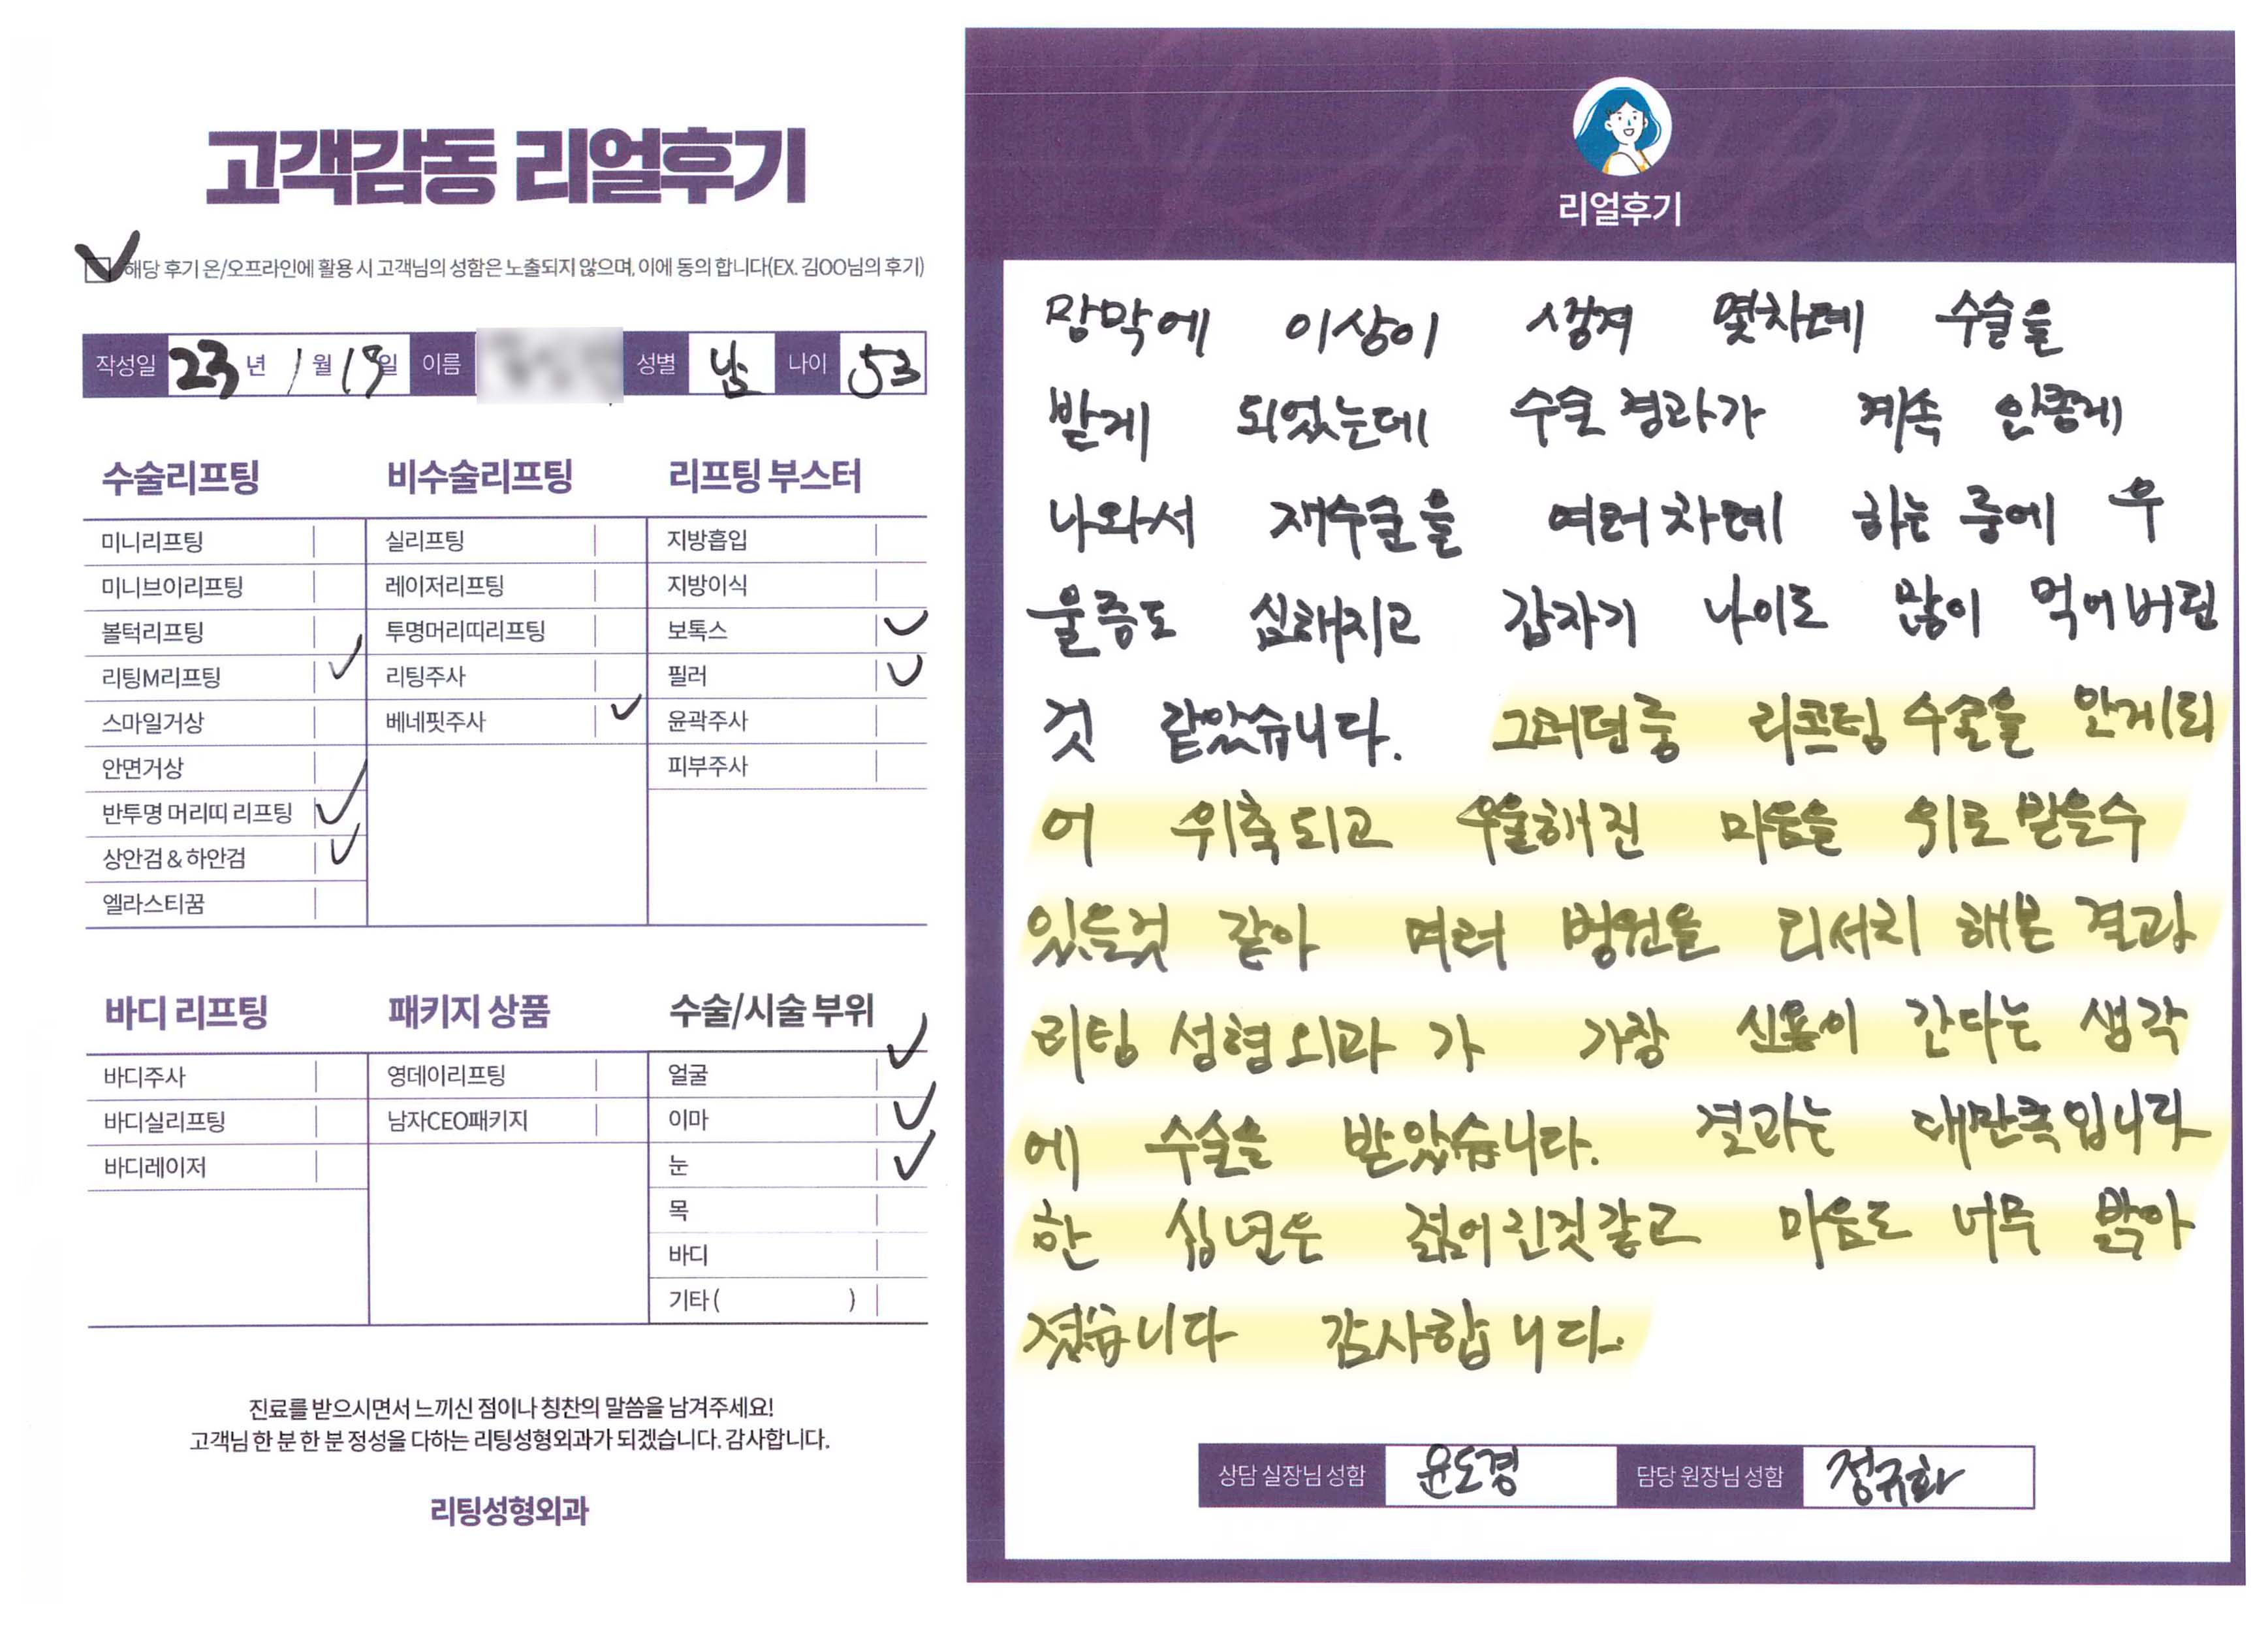 고객감동 리얼후기
해당 후기 온/오프라인에 활용 시 고객님의 성함은 노출되지 않으며, 이에 동의 합니다(EX. 김OO님의 후기)
작성일 23 년 1 월 19 일 이름 성별 남 나이 53
수술리프팅
미니리프팅
미니브이리프팅
볼턱리프팅
리팅M리프팅
스마일거상
안면거상
반투명 머리띠 리프팅
상안검 & 하안검
엘라스티꿈
비수술리프팅
실리프팅
레이저리프팅
투명머리띠리프팅
리팅주사
베네핏주사
리프팅 부스터
지방흡입
지방이식
보톡스
필러
윤곽주사
피부주사
바디 리프팅
바디주사
바디실리프팅
바디레이저
패키지 상품
영데이리프팅
남자CEO패키지
수술/시술 부위
얼굴
이마
눈
목
바디
기타 ( )
진료를 받으시면서 느끼신 점이나 칭찬의 말씀을 남겨주세요!
고객님 한 분 한 분 정성을 다하는 리팅성형외과가 되겠습니다. 감사합니다.
리팅성형외과
Review
리얼후기
망막에 이상이 생겨 몇차례 수술을
받게 되었는데 수술경과가 계속 안좋게
나와서 재수술을 여러차례 하는 중에 우
울증도 심해지고 갑자기 나이도 많이 먹어버린
것 같았습니다. 그러던중 리프팅 수술을 알게되
어 위축되고 우울해진 마음을 위로 받을수
있을것 같아 여러 병원을 리서치 해본 결과
리팅 성형외과 가 가장 신용이 간다는 생각
에 수술을 받았습니다. 결과는 대만족입니다
한 십년은 젊어진것같고 마음도 너무 밝아
졌습니다 감사합니다.
상담 실장님 성함 윤도경 담당 원장님 성함 정규화